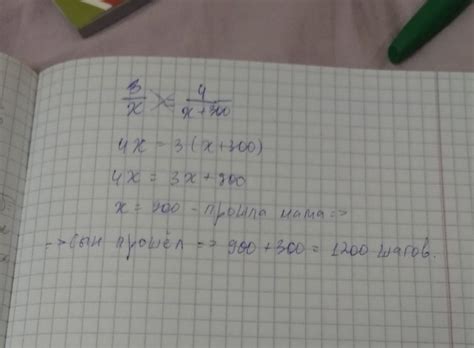 3/x = 4/(x+300)
4x = 3(x+300)
4x = 3x+900
x = 900 - прошла мама =>
-> Сын прошёл => 900+300 = 1200 шагов.